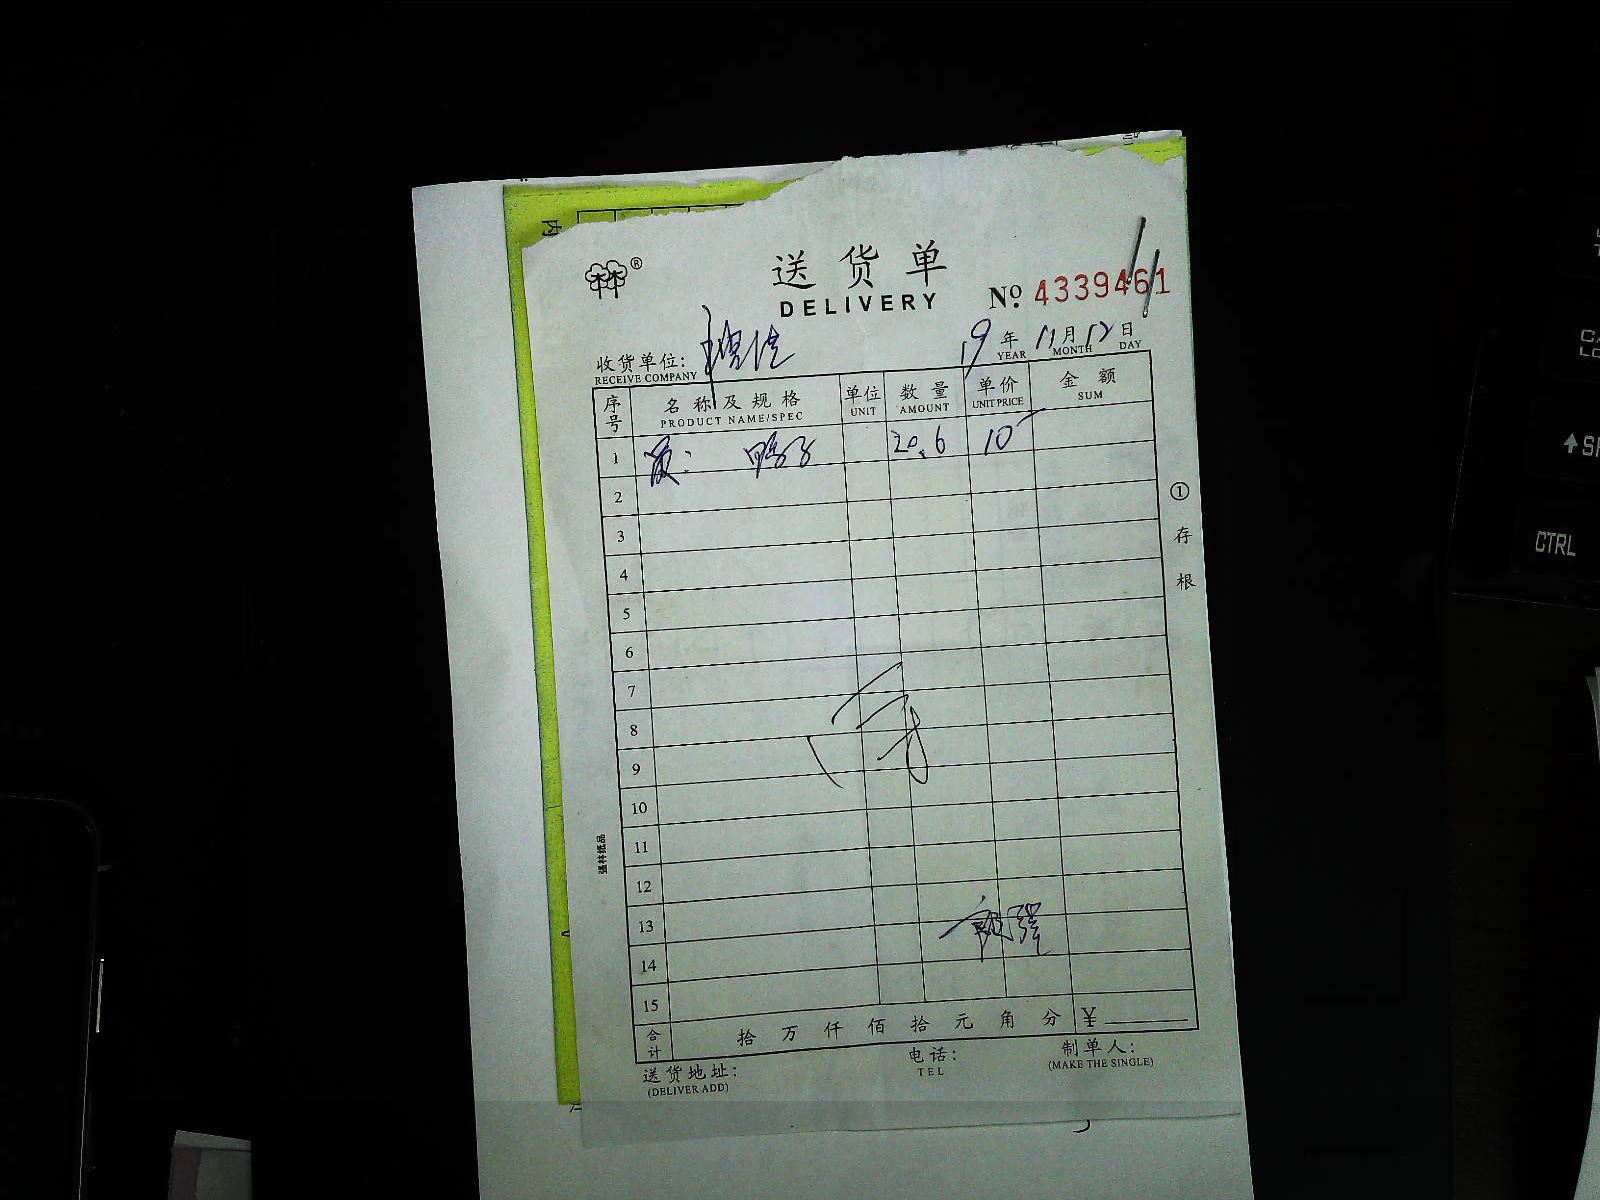 内
®
送货单
DELIVERY
No. 4339461
收货单位:
RECEIVE COMPANY
19 年 11 月 12 日
YEAR MONTH DAY
序号 名称及规格 单位 数量 单价 金额
PRODUCT NAME/SPEC UNIT AMOUNT UNIT PRICE SUM
1 20.6 10
2
3
4
5
6
7
8
9
10
11
12
13
14
15
合计 拾 万 仟 佰 拾 元 角 分 ¥
送货地址: 电话: 制单人:
(DELIVER ADD) TEL (MAKE THE SINGLE)
① 存根
强林纸品
CTRL